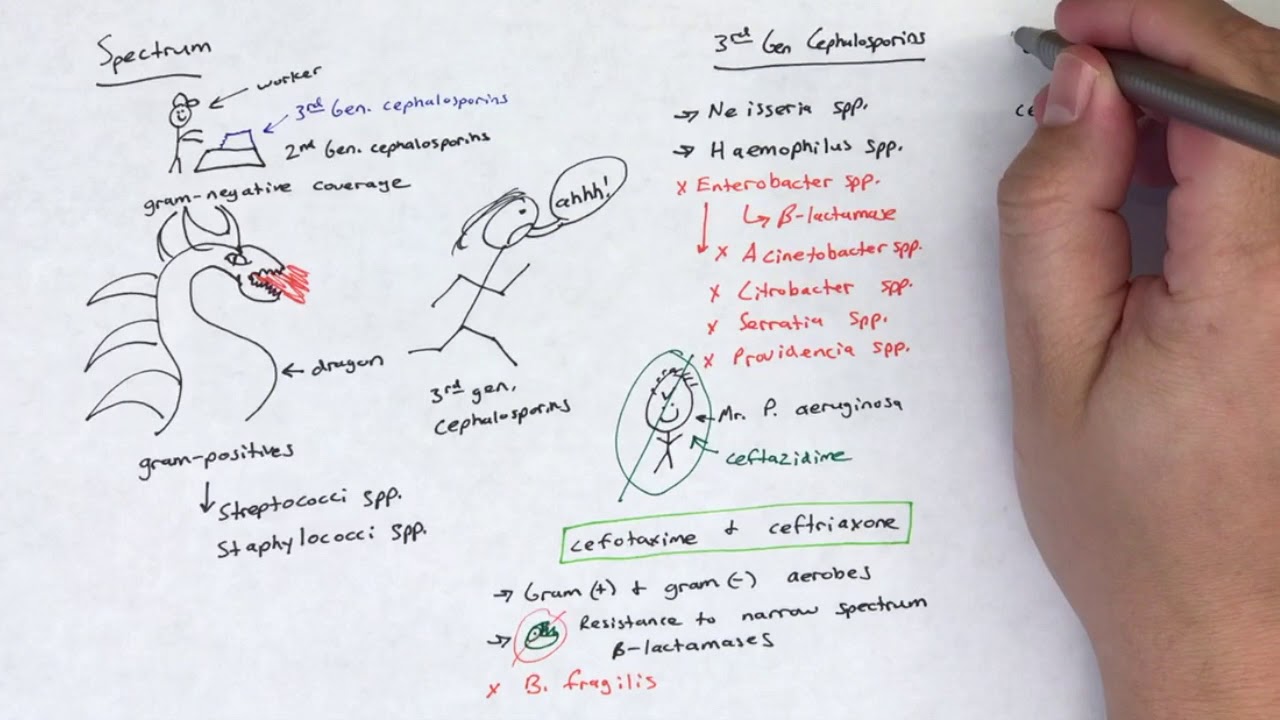 Spectrum
worker
3rd Gen. cephalosporins
2nd Gen. cephalosporins
gram-negative coverage
ahhh!
dragon
3rd gen.
cephalosporins
gram-positives
Streptococci spp.
Staphylococci spp.
3rd Gen Cephalosporins
→ Neisseria spp.
→ Haemophilus spp.
x Enterobacter spp.
↳ β-lactamase
x Acinetobacter spp.
x Citrobacter spp.
x Serratia spp.
x Providencia spp.
Mr. P. aeruginosa
ceftazidime
cefotaxime + ceftriaxone
→ Gram (+) + gram (-) aerobes
→ Resistance to narrow spectrum
β-lactamases
x B. fragilis